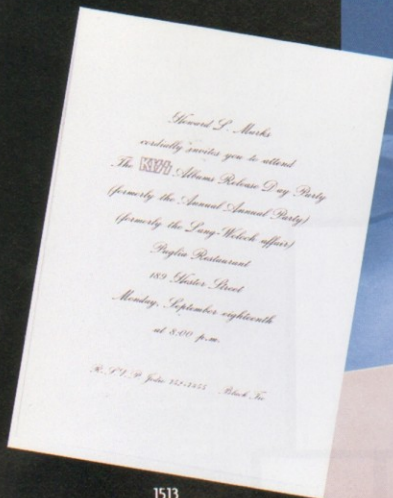 Howard S. Marks
cordially invites you to attend
The KISS Albums Release Day Party
(formerly the Annual Annual Party)
(formerly the Lang-Wolock affair)
Puglia Restaurant
189 Hester Street
Monday, September eighteenth
at 8:00 p.m.
R.S.V.P. Jodie Black Tie
1513